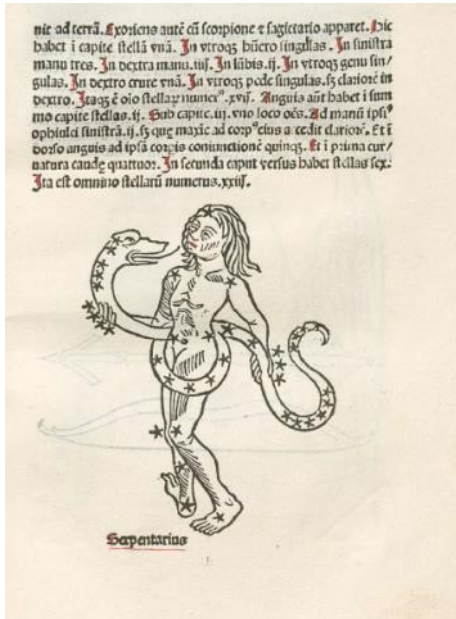 nit ad terrã. Exoriens autẽ cũ scorpione ⁊ sagittario apparet. Hic
habet ĩ capite stellã vnã. In vtroqʒ hũero singulas. In sinistra
manu tres. In dextra manu.iiij. In lũbis.ij. In vtroqʒ genu sin/
gulas. In dextro crure vnã. In vtroqʒ pede singulas.sʒ clariorẽ in
dextro. Itaqʒ ẽ oĩo stellaꝝ numerꝰ.xvij. Anguis aũt habet ĩ sum
mo capite stellas.ij. Sub capite.iij.vno loco oẽs. Ad manũ ipsiꝰ
ophiulci sinistrã.ij.sʒ que maxie ad corpꝰ eius accedit clariorẽ. Et ĩ
dorso anguis ad ipsã corpis coniunctionẽ quinqʒ. Et ĩ prima cur/
natura caudę quattuor. In secunda caput versus habet stellas sex.
Ita est omnino stellarũ numerus.xxiij.
Serpentarius